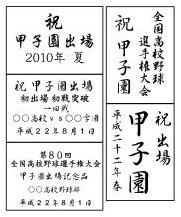 祝
甲子園出場
2010年 夏
祝 甲子園出場
初出場 初戦突破
一回戦
○○高校vs○○学園
平成22年8月1日
第80回
全国高校野球選手権大会
甲子園出場記念品
○○高校野球部
平成22年8月1日
全国高校野球
選手権大会
祝 甲子園
祝 出場
甲子園
平成二十二年春